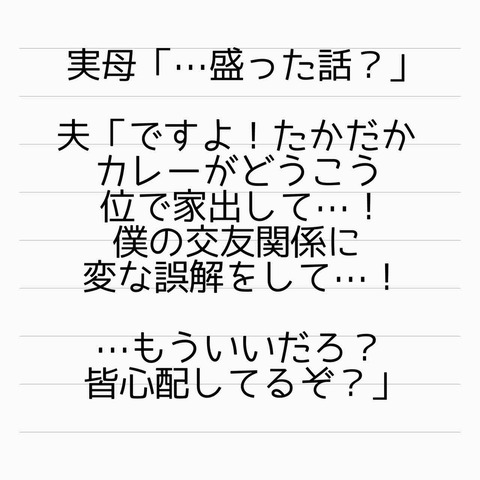 実母「…盛った話？」
夫「ですよ！たかだか
カレーがどうこう
位で家出して…！
僕の交友関係に
変な誤解をして…！
…もういいだろ？
皆心配してるぞ？」